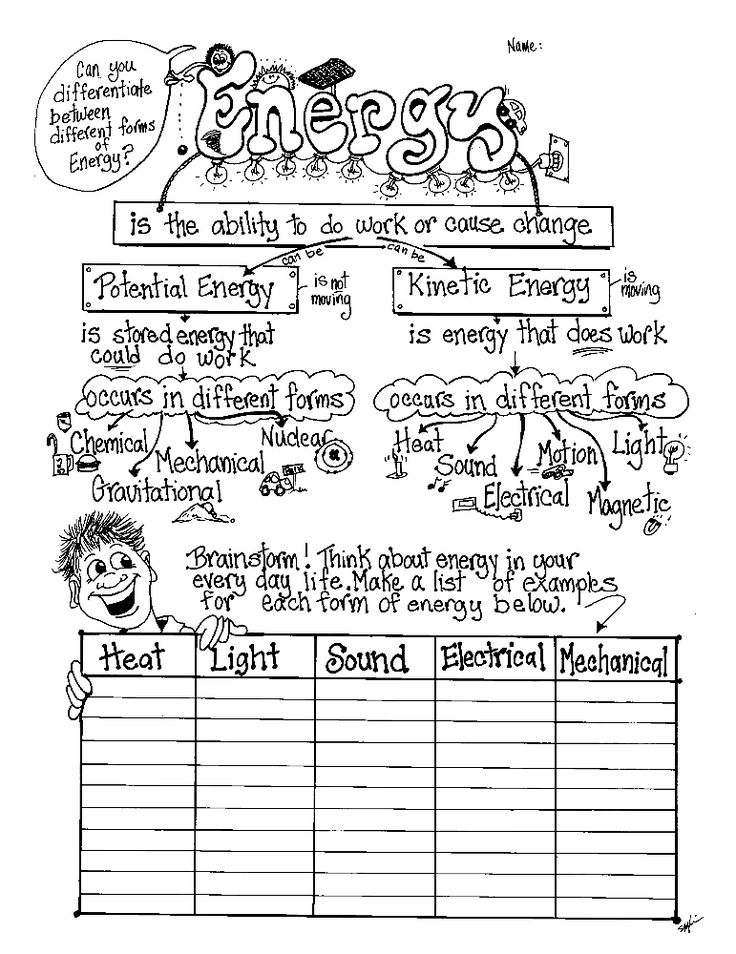 Name:
Can you
differentiate
between
different forms
of
Energy?
Energy
is the ability to do work or cause change
can be
can be
Potential Energy
is not
moving
Kinetic Energy
is
moving
is stored energy that
could do work
is energy that does work
occurs in different forms
occurs in different forms
Chemical
Nuclear
Mechanical
Gravitational
Heat
Sound
Motion
Light
Electrical
Magnetic
Brainstorm! Think about energy in your
every day life. Make a list of examples
for each form of energy below.
Heat Light Sound Electrical Mechanical